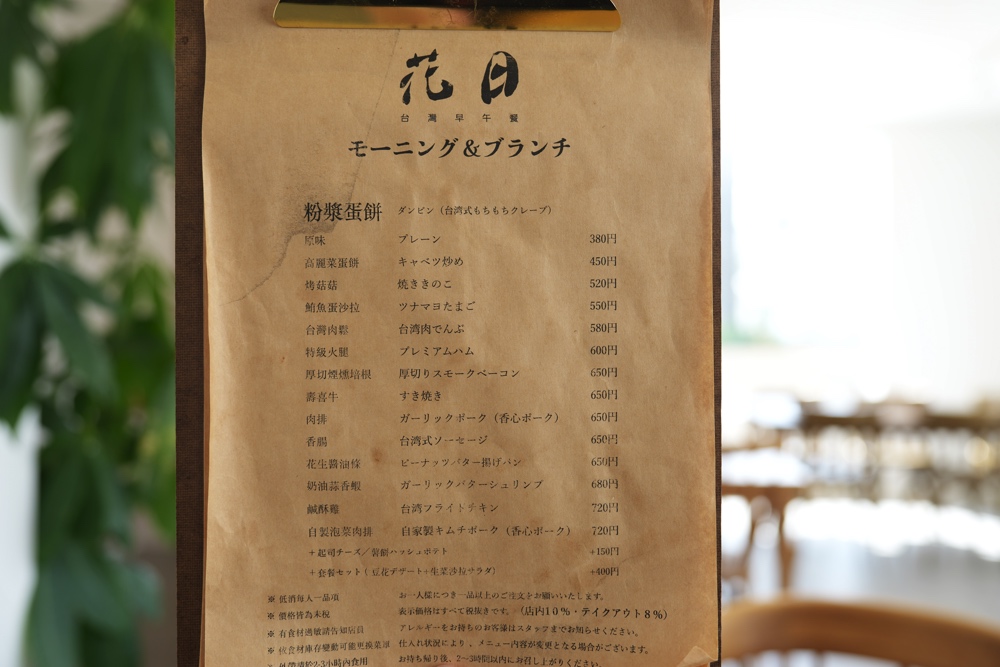 花日
台灣早午餐
モーニング&ブランチ
粉漿蛋餅 ダンピン（台湾式もちもちクレープ）
原味 プレーン 380円
高麗菜蛋餅 キャベツ炒め 450円
烤菇菇 焼ききのこ 520円
鮪魚蛋沙拉 ツナマヨたまご 550円
台灣肉鬆 台湾肉でんぶ 580円
特級火腿 プレミアムハム 600円
厚切煙燻培根 厚切りスモークベーコン 650円
壽喜牛 すき焼き 650円
肉排 ガーリックポーク（香心ポーク） 650円
香腸 台湾式ソーセージ 650円
花生醬油條 ピーナッツバター揚げパン 650円
奶油蒜香蝦 ガーリックバターシュリンプ 680円
鹹酥雞 台湾フライドチキン 720円
自製泡菜肉排 自家製キムチポーク（香心ポーク） 720円
＋起司チーズ／薯餅ハッシュポテト +150円
＋套餐セット（豆花デザート+生菜沙拉サラダ） +400円
※ 低消每人一品項 お一人様につき一品以上のご注文をお願いいたします。
※ 價格皆為未稅 表示価格はすべて税抜きです。（店内10％・テイクアウト8％）
※ 有食材過敏請告知店員 アレルギーをお持ちのお客様はスタッフまでお知らせください。
※ 依食材庫存變動可能更換菜單 仕入れ状況により、メニュー内容が変更となる場合がございます。
外帶請於2-3小時內食用 お持ち帰り後、2〜3時間以内にお召し上がりください。